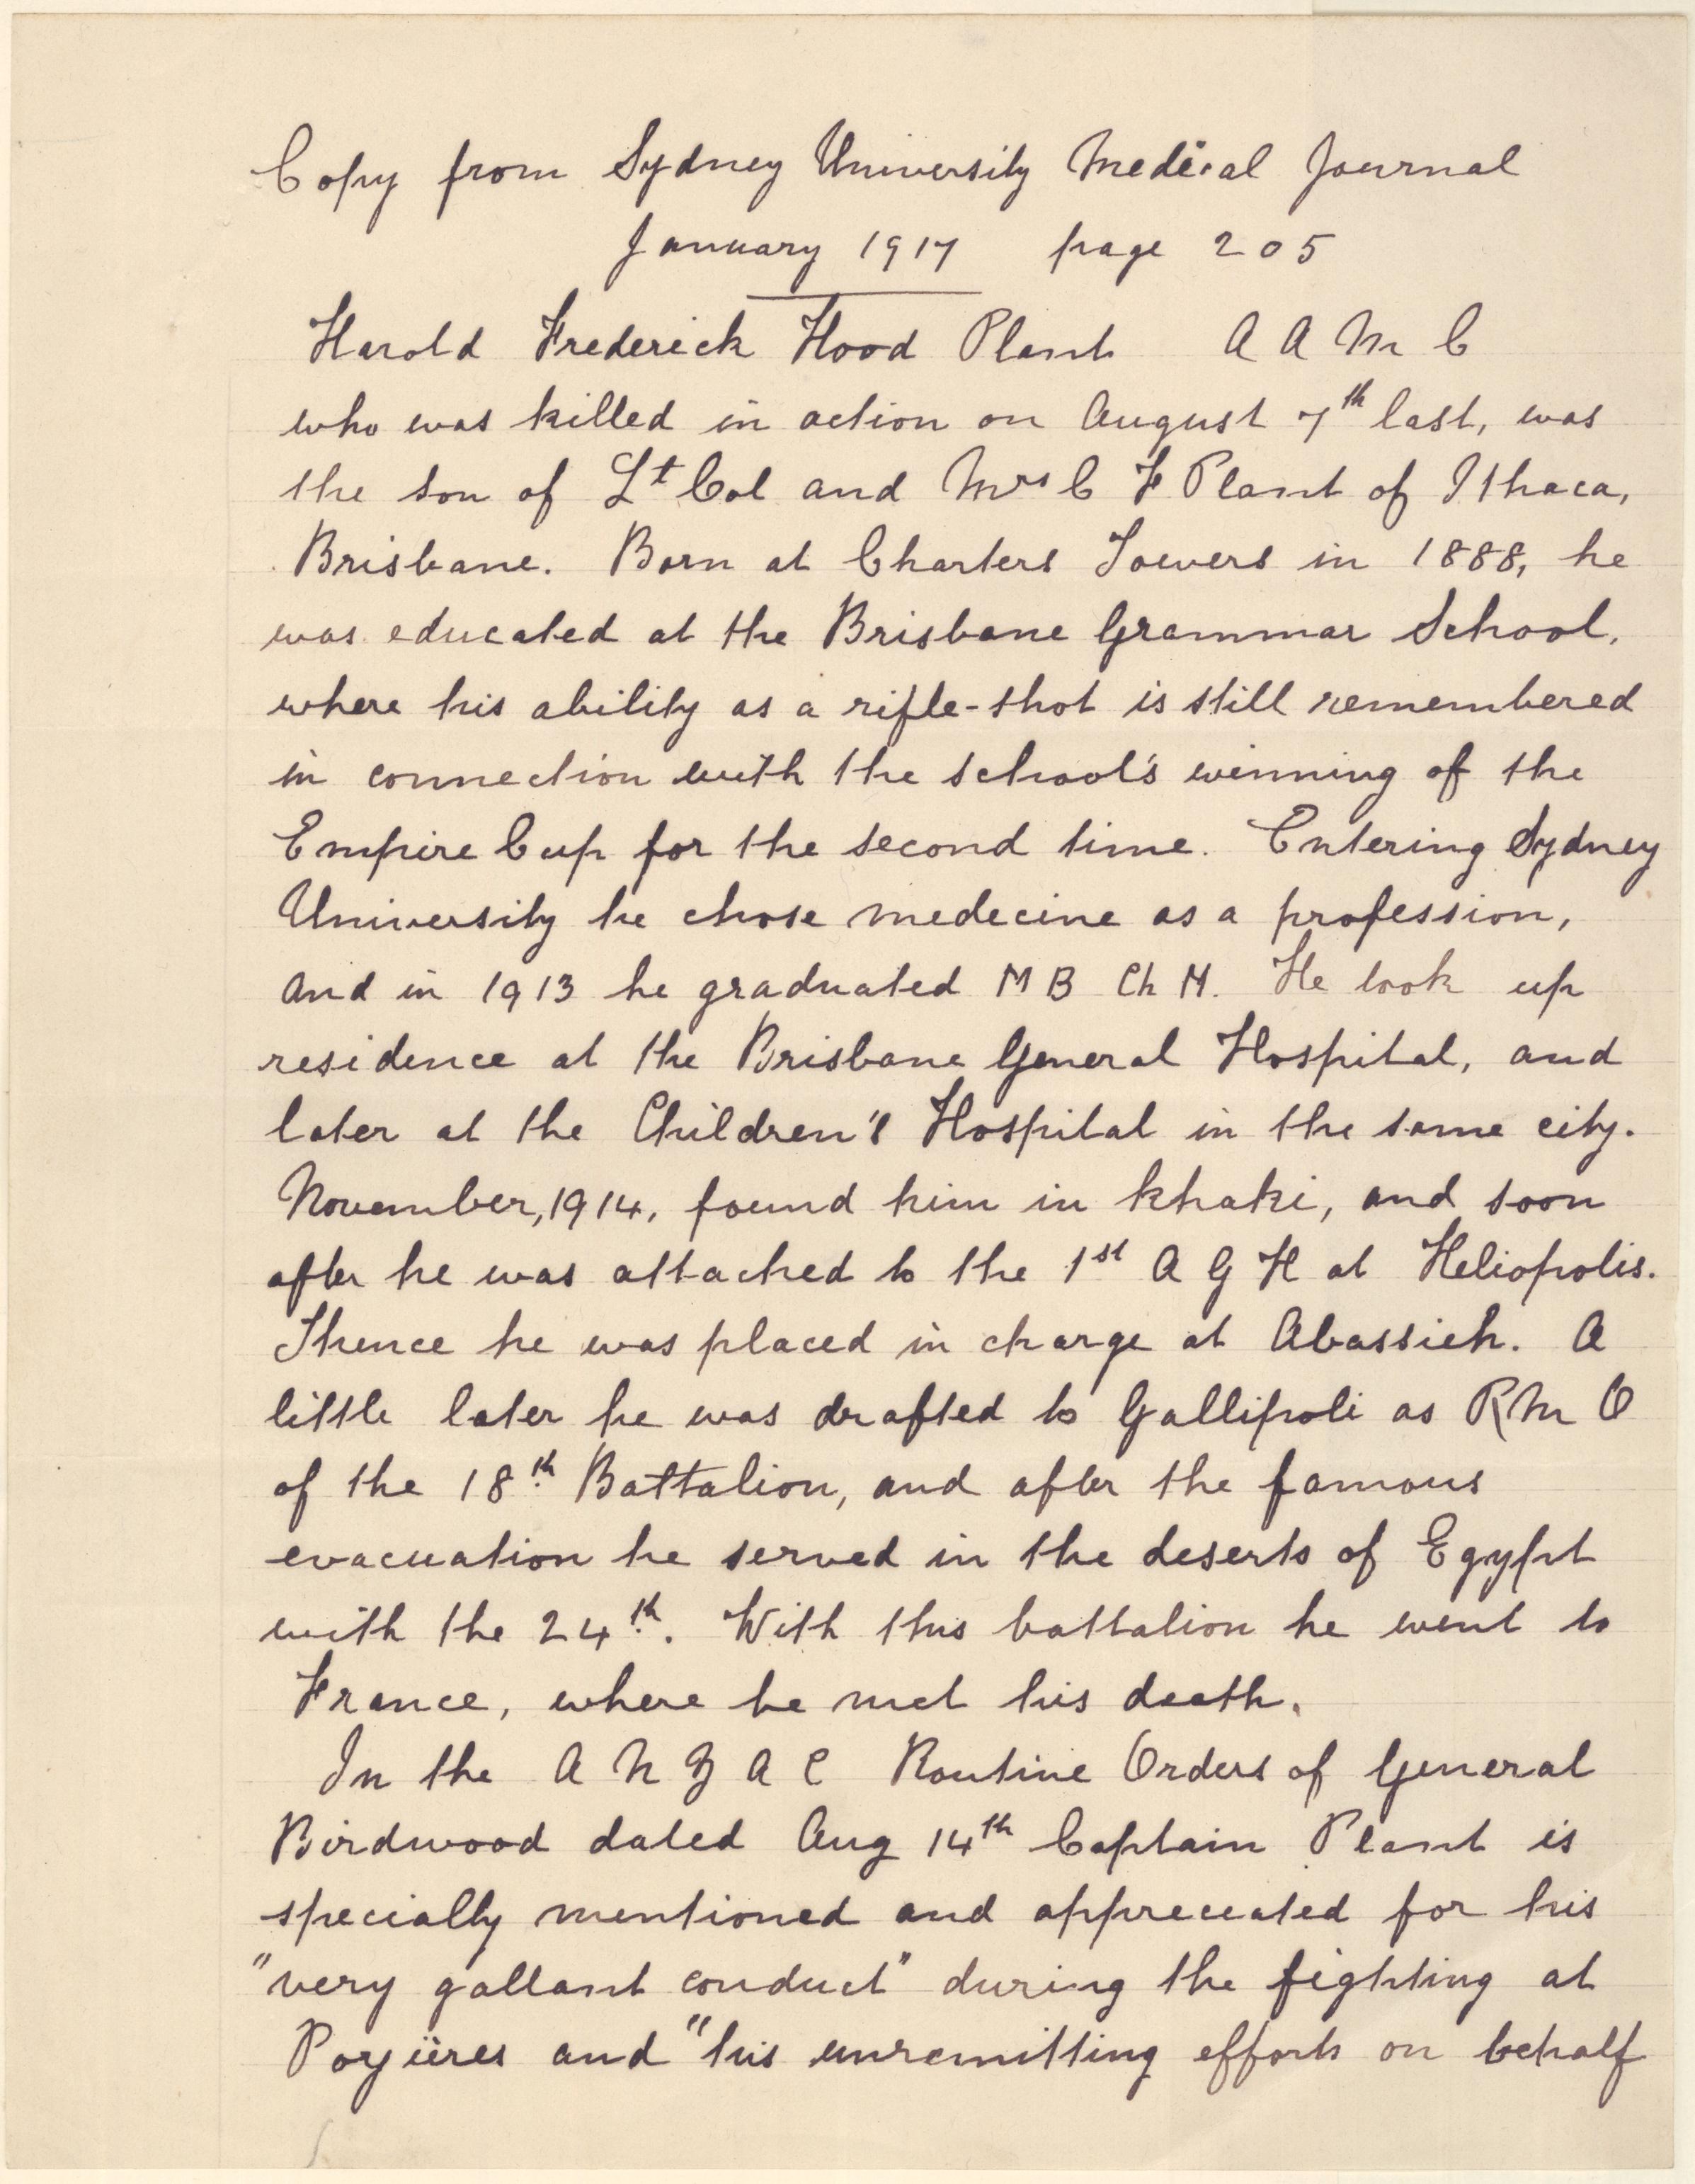 Copy from Sydney University Medical Journal
January 1917 page 205
Harold Frederick Hood Plant A A M C
who was killed in action on August 7th last, was
the son of Lt Col and Mrs C F Plant of Ithaca,
Brisbane. Born at Charters Towers in 1888, he
was educated at the Brisbane Grammar School,
where his ability as a rifle-shot is still remembered
in connection with the school's winning of the
Empire Cup for the second time. Entering Sydney
University he chose medecine as a profession,
and in 1913 he graduated M B Ch M. He took up
residence at the Brisbane General Hospital, and
later at the Children's Hospital in the same city.
November, 1914, found him in khaki, and soon
after he was attached to the 1st A G H at Heliopolis.
Thence he was placed in charge at Abassieh. A
little later he was drafted to Gallipoli as R M O
of the 18th Battalion, and after the famous
evacuation he served in the deserts of Egypt
with the 24th. With this battalion he went to
France, where he met his death.
In the A N Z A C Routine Orders of General
Birdwood dated Aug 14th Captain Plant is
specially mentioned and appreceated for his
"very gallant conduct" during the fighting at
Pozières and "his unremitting efforts on behalf